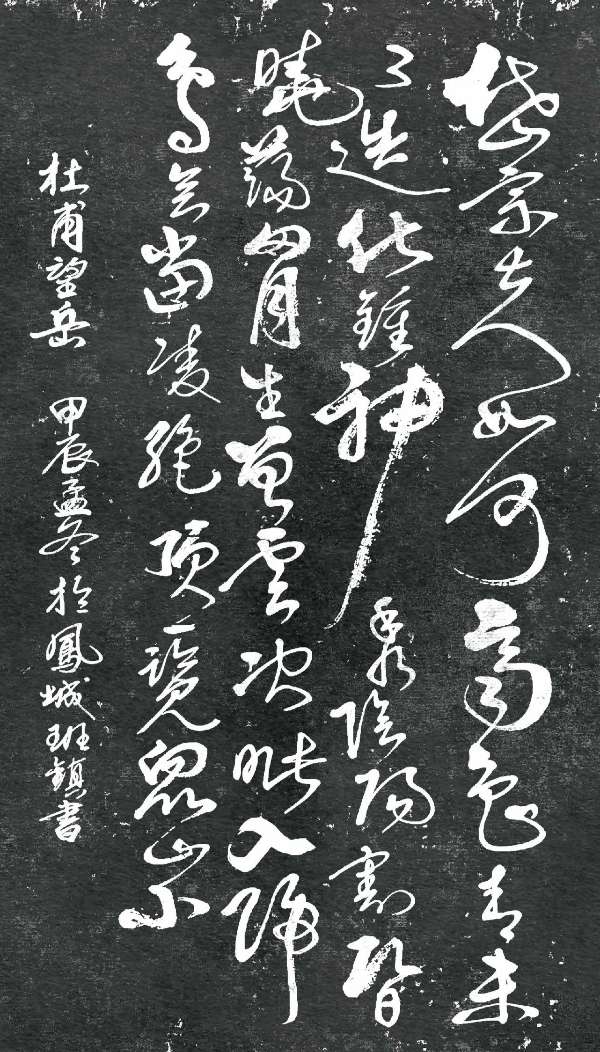 岱宗夫如何齊魯青未
了造化鍾神秀陰陽割昏
曉蕩胷生曾雲決眥入歸
鳥會當凌絕頂一覽眾山小
杜甫望岳 甲辰孟冬於鳳城班鎮書